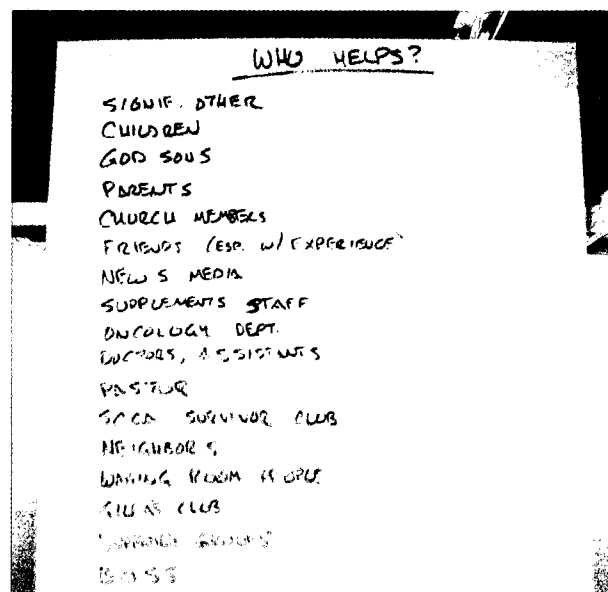 WHO HELPS?
SIGNIF. OTHER
CHILDREN
GOD SONS
PARENTS
CHURCH MEMBERS
FRIENDS (ESP. W/ EXPERIENCE
NEWS MEDIA
SUPPLEMENTS STAFF
ONCOLOGY DEPT.
DOCTORS, ASSISTANTS
PASTOR
SURVIVOR CLUB
NEIGHBORS
WAITING ROOM PEOPLE
GILDA'S CLUB
SUPPORT GROUPS
BOSS